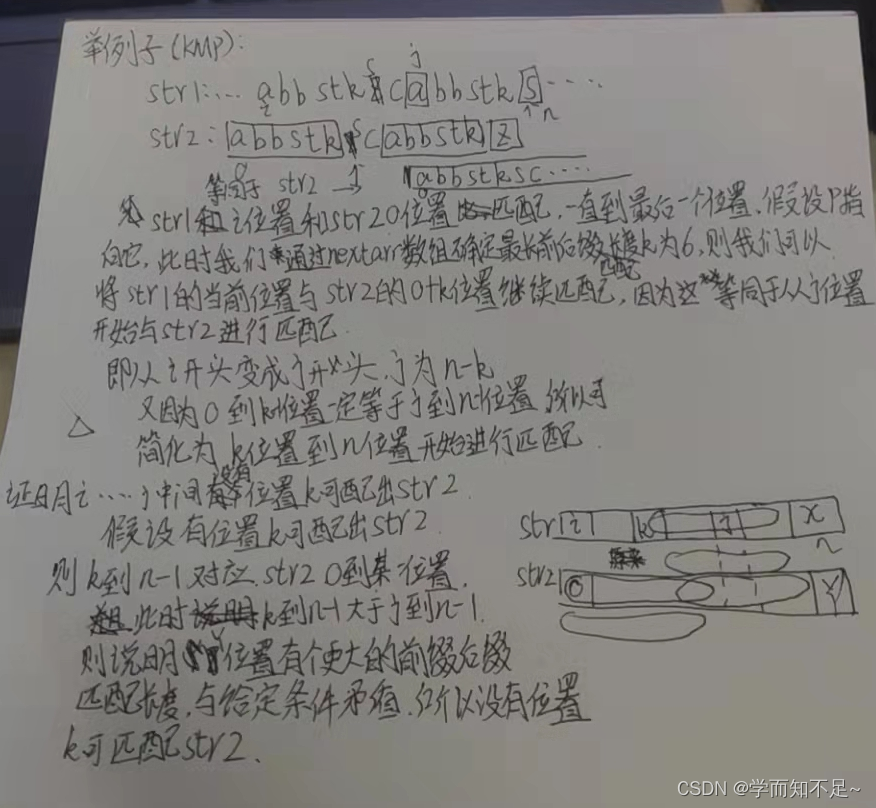 举例子(KMP):
j
str1:... abbstk s c a bbstk s ....
i n
str2: abbstk s c abbstk z
0
等同于 str2 → abbstksc....
0
从 str1和i位置和str2 0位置匹配,一直到最后一个位置,假设P指
向它,此时我们通过nextarr数组确定最长前后缀匹配长度k为6,则我们可以
将str1的当前位置与str2的0+k位置继续匹配,因为这等同于从j位置
开始与str2进行匹配.
即从i开头变成j开头,j为n-k
又因为0到k位置一定等于j到n位置 所以可
△ 简化为 k位置到n位置开始进行匹配.
证明i....j中间没有位置k可配出str2.
假设有位置k可配出str2.
则k到n-1对应str2 0到某位置.
此时k到n-1大于j到n-1.
则说明Y位置有个更大的前缀后缀
匹配长度,与给定条件矛盾,所以没有位置
k可匹配str2.
str1 i k j x
n
str2 0 Y
CSDN @学而知不足~